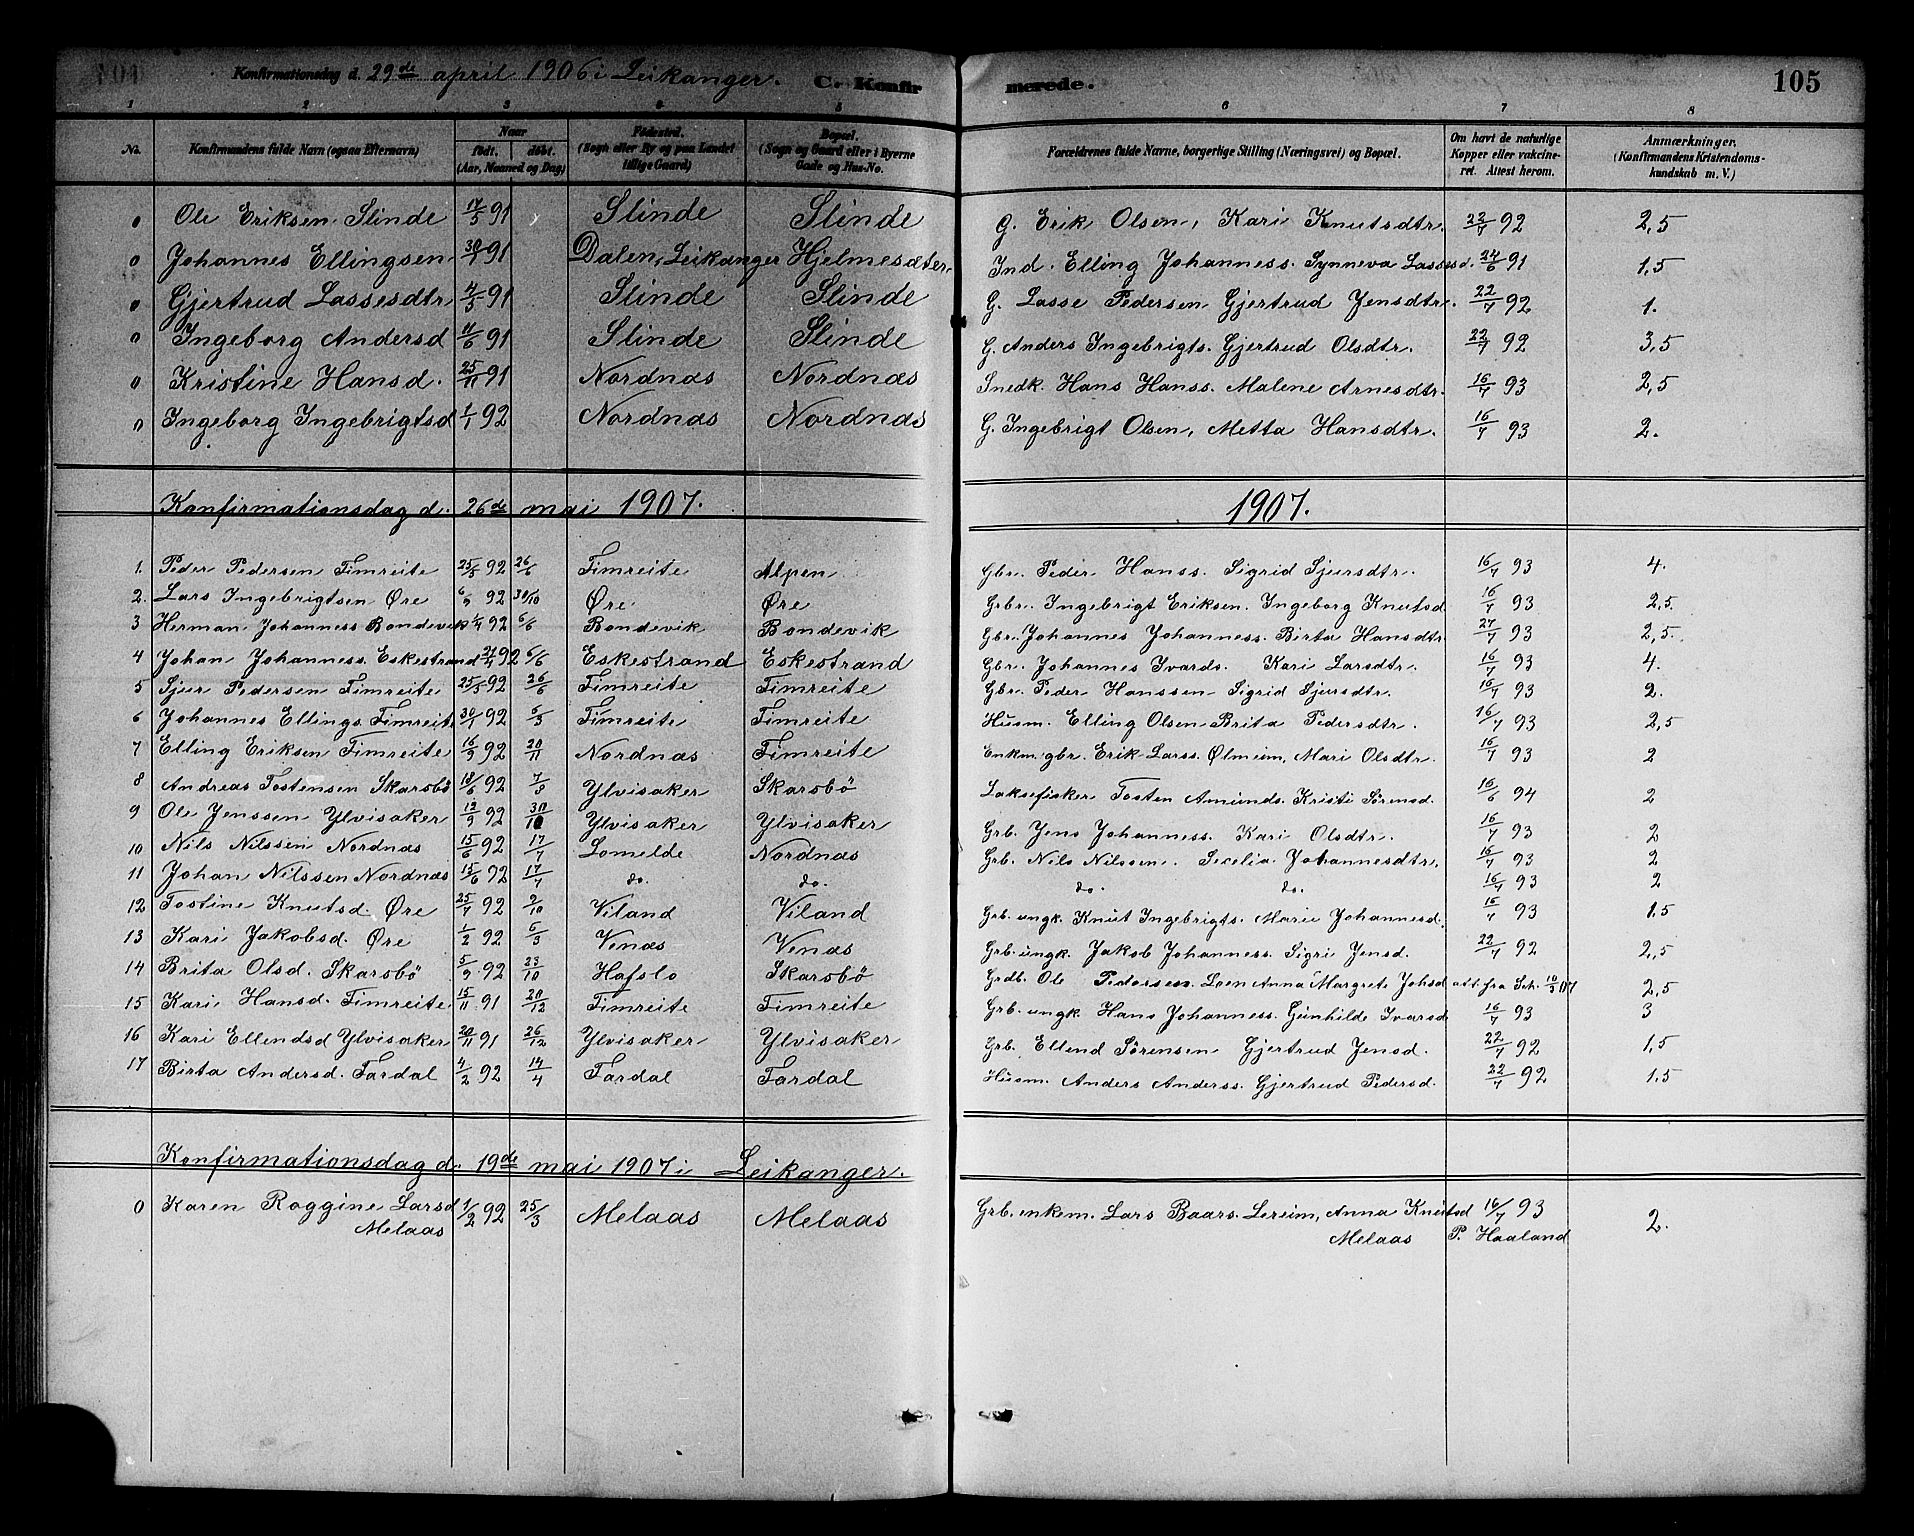 Konfirmationsdag d. 29de april 1906 i Leikanger. C. Konfirmerede. 105
1 2 3 4 5 6 7 8
No. Konfirmandens fulde Navn (ogsaa Efternavn) Naar født. døbt. (Aar, Maaned og Dag) Fødested. (Sogn eller By og paa Landet tillige Gaard) Bopæl. (Sogn og Gaard eller i Byerne Gade og Hus-No.) Forældrenes fulde Navne, borgerlige Stilling (Næringsvei) og Bopæl. Om havt de naturlige Kopper eller vakcineret. Attest herom. Anmærkninger. (Konfirmandens Kristendomskundskab m. V.)
0 Ole Eriksen Slinde 17/5 91 Slinde Slinde G. Erik Olsen, Kari Knutsdtr. 22/7 92 2,5
0 Johannes Ellingsen 91 Dalen, Leikanger Hjelmesdter Ind. Elling Johanness. Synneva Lassesd. 24/6 91 1,5
0 Gjertrud Lassesdtr 4/5 91 Slinde Slinde G. Lasse Pedersen Gjertrud Jensdtr. 22/7 92 1.
0 Ingeborg Andersd 11/6 91 Slinde Slinde G. Anders Ingebrigts. Gjertrud Olsdtr. 22/7 92 3,5
0 Kristine Hansd. 25/11 91 Nordnæs Nordnæs Snedk. Hans Hanss. Malene Arnesdtr. 16/7 93 2,5
0 Ingeborg Ingebrigtsd 1/1 92 Nordnæs Nordnæs G. Ingebrigt Olsen, Metta Hansdtr. 16/7 93 2.
Konfirmationsdag d. 26de mai 1907. 1907.
1. Peder Pedersen Timreite 25/5 92 26/6 Timreite Alpen Gbr. Peder Hanss. Sigrid Sjursdtr. 16/7 93 4.
2. Lars Ingebrigtsen Øre 6/9 92 30/10 Øre Øre Grbr. Ingebrigt Eriksen. Ingeborg Knutsd 16/7 93 2,5.
3 Herman Johanness Bondevik 92 6/6 Bondevik Bondevik Gbr. Johannes Johanness. Birta Hansdtr 27/7 93 2,5.
4 Johan Johanness. Eskestrand 21/4 92 6/6 Eskestrand Eskestrand Gbr. Johannes Ivards. Kari Larsdtr. 16/7 93 4.
5 Sjur Pedersen Timreite 25/5 92 26/6 Timreite Timreite Gbr. Peder Hanssen Sigrid Sjursdtr. 16/7 93 2.
6 Johannes Ellings. Timreite 30/1 92 6/3 Timreite Timreite Husm. Elling Olsen Brita Pedersdtr. 16/7 93 2,5
7 Elling Eriksen Timreite 16/9 92 20/11 Nordnæs Timreite Enkem. gbr. Erik Larss. Ølmeim, Mari Olsdtr. 16/7 93 2
8 Andreas Tostensen Skarsbø 18/6 92 7/8 Ylvisaker Skarsbö Laksefisker Tosten Amunds. Kristi Sørensd. 16/6 94 2
9 Ole Jenssen Ylvisaker 12/9 92 30/10 Ylvisaker Ylvisaker Grb. Jens Johanness. Kari Olsdtr. 16/7 93 2
10 Nils Nilssen Nordnæs 15/6 92 17/7 Lomelde Nordnæs Grb. Nils Nilssen. Secelia Johannesdtr. 16/7 93 2
11 Johan Nilssen Nordnæs 15/6 92 17/7 do. do. do. do. 16/7 93 2
12 Tostine Knutsd. Øre 25/7 92 2/10 Viland Viland Grb. ungk. Knut Ingebrigts. Marie Johannesd. 16/7 93 1,5
13 Kari Jakobsd. Øre 1/2 92 6/3 Venæs Venæs Grb. ungk. Jakob Johanness. Sigri Jensd. 22/7 92 2,5
14 Brita Olsd. Skarsbö 5/9 92 23/10 Hafslo Skarsbö Grdb. Ole Pedersen Loen Anna Margrete Johsd att. fra 2,5
15 Kari Hansd. Timreite 15/11 91 20/12 Timreite Timreite Grb. ungk Hans Johanness. Gunhilde Ivarsd 16/7 93 3
16 Kari Ellendsd Ylvisaker 20/11 91 26/12 Ylvisaker Ylvisaker Grb. Ellend Sørensen Gjertrud Jensd. 22/7 92 1,5
17 Birta Andersd. Fardal 4/2 92 14/4 Fardal Fardal Husm. Anders Anderss. Gjertrud Pedersd. 22/7 92 1,5
Konfirmationsdag d. 19de mai 1907 i Leikanger.
0 Karen Roggine Larsd 1/2 92 25/3 Melaas Melaas Grb. enkem. Lars Baars. Lereim, Anna Knutsd 16/7 93 2.
Melaas Melaas P. Haaland